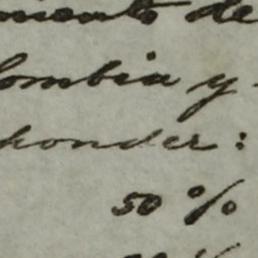 mento de
lombia y
ponder:
50 %